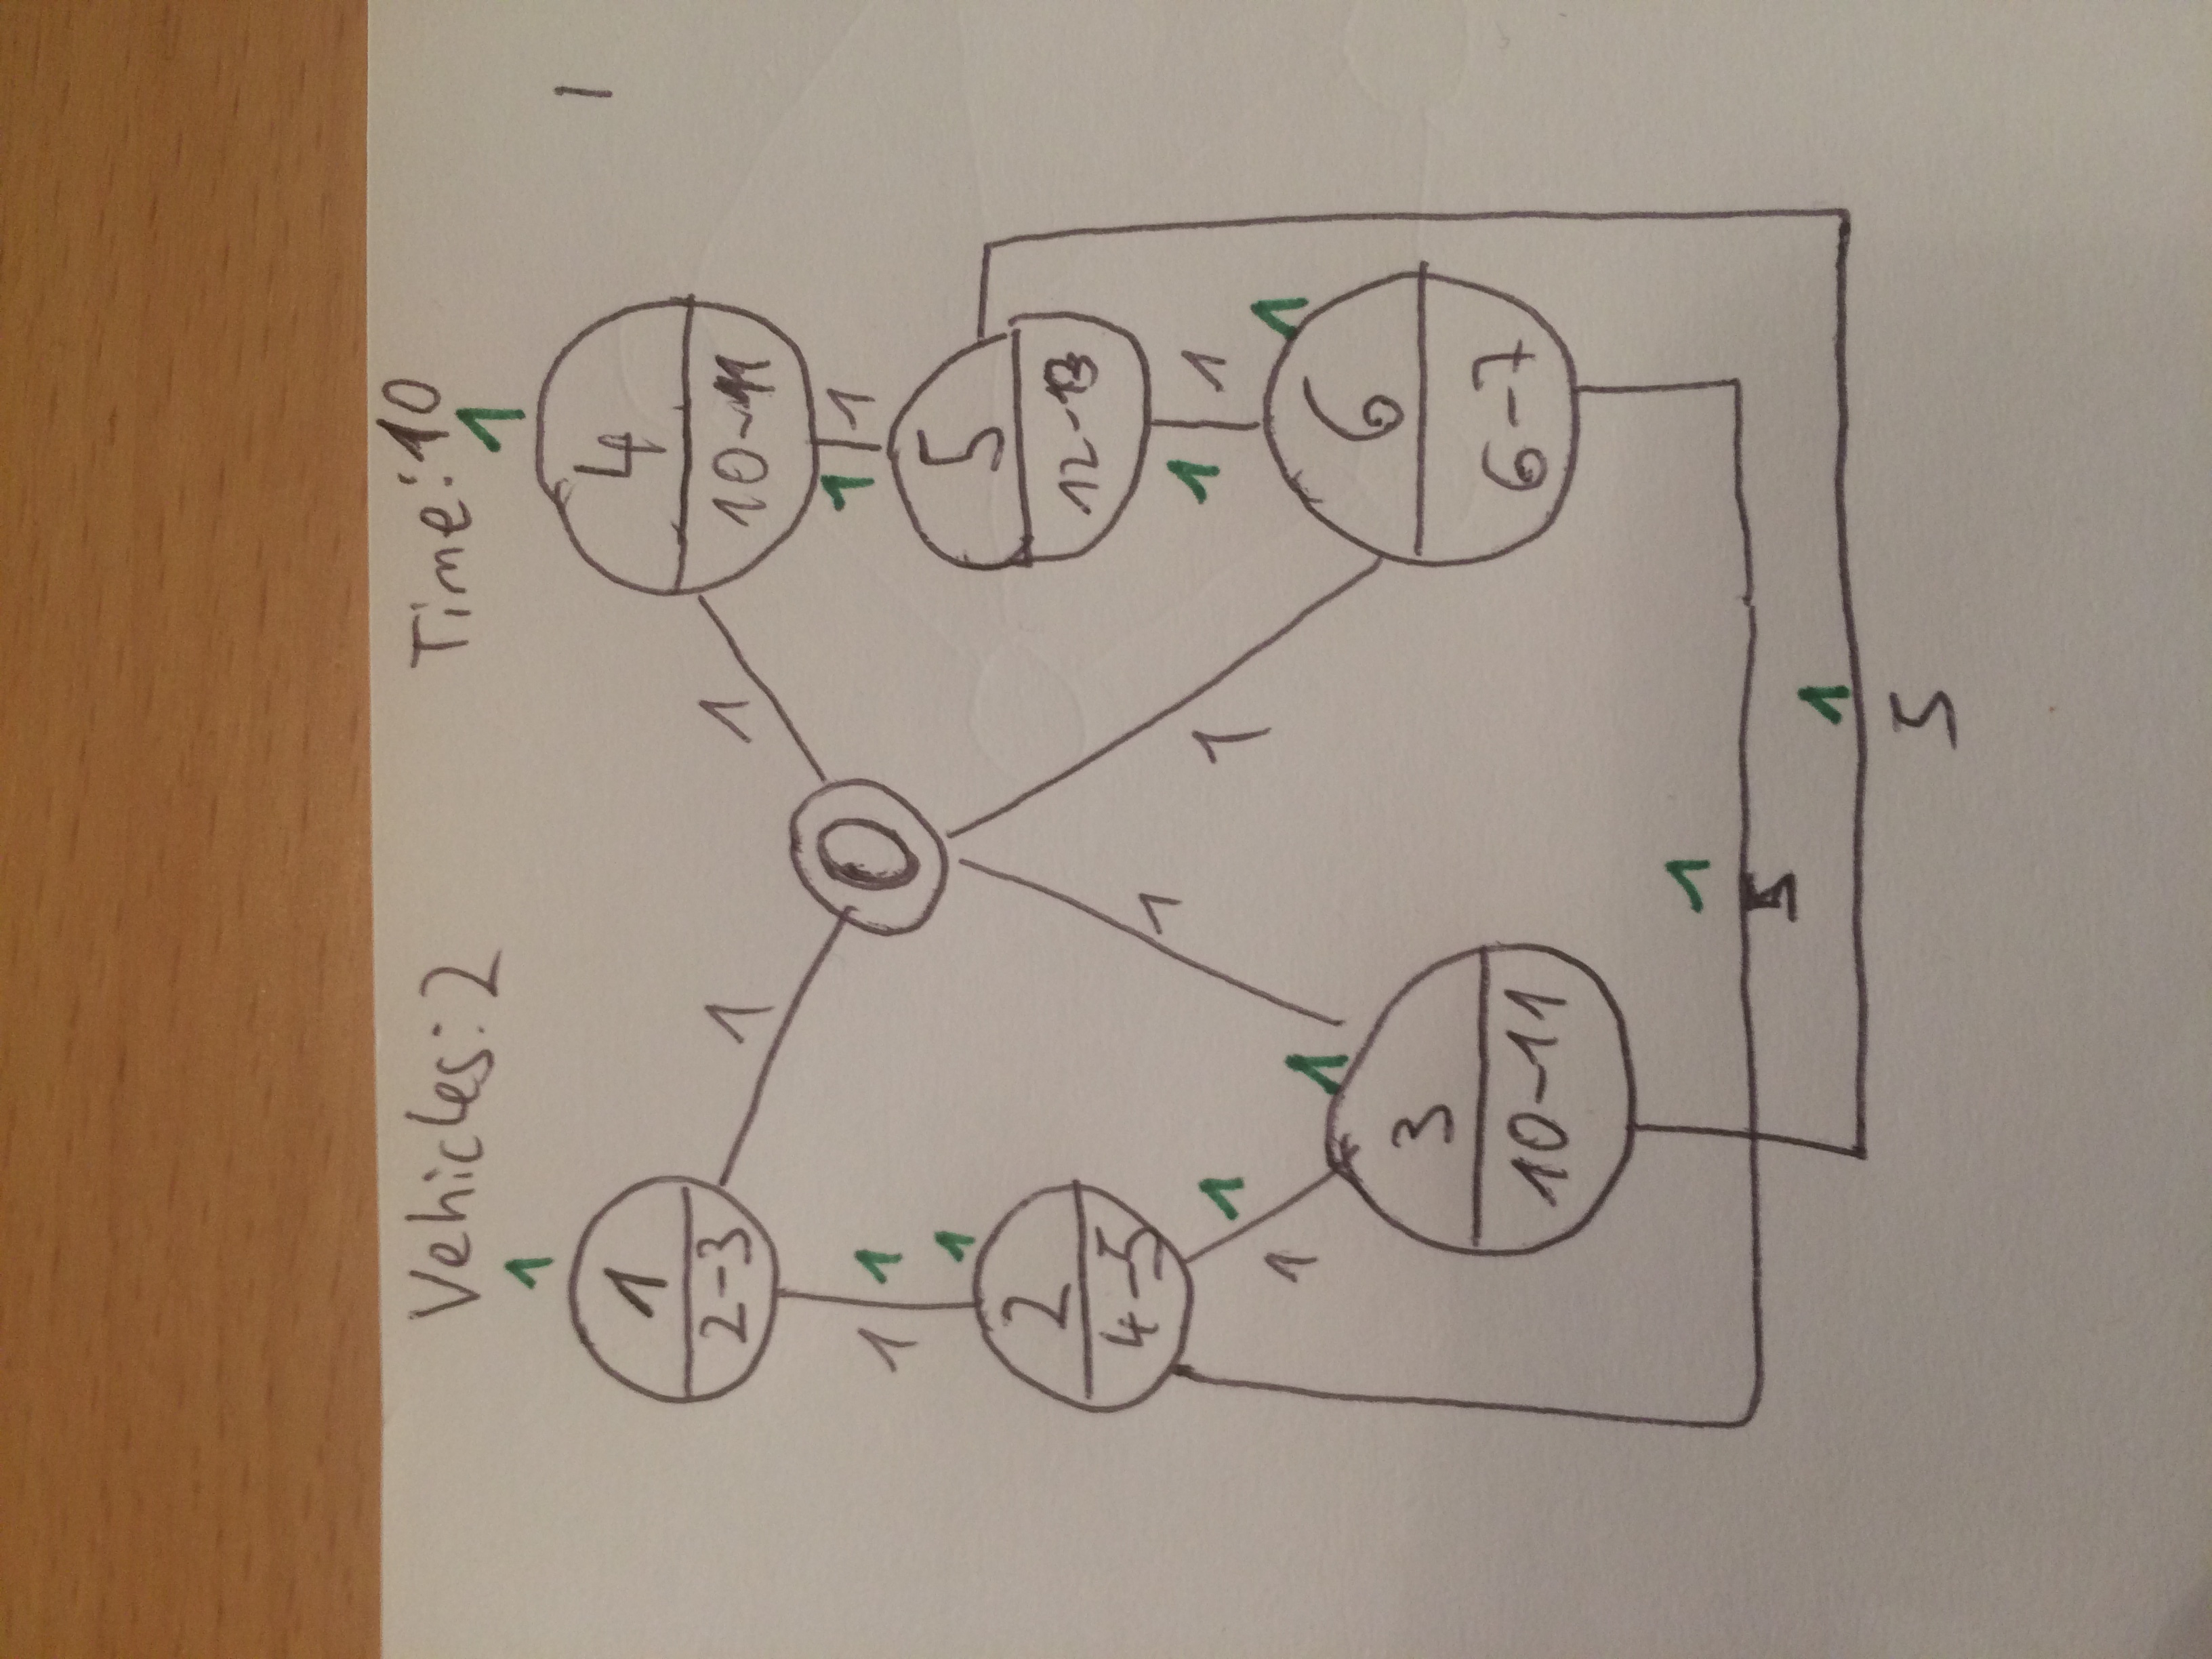 Vehicles: 2
Time: 10
1
1
1
2-3
4
10-11
1
1
0
1
1
1
1
1
5
12-13
2
4-5
1
1
1
1
1
1
1
1
3
10-11
1
6
6-7
1
5
1
5